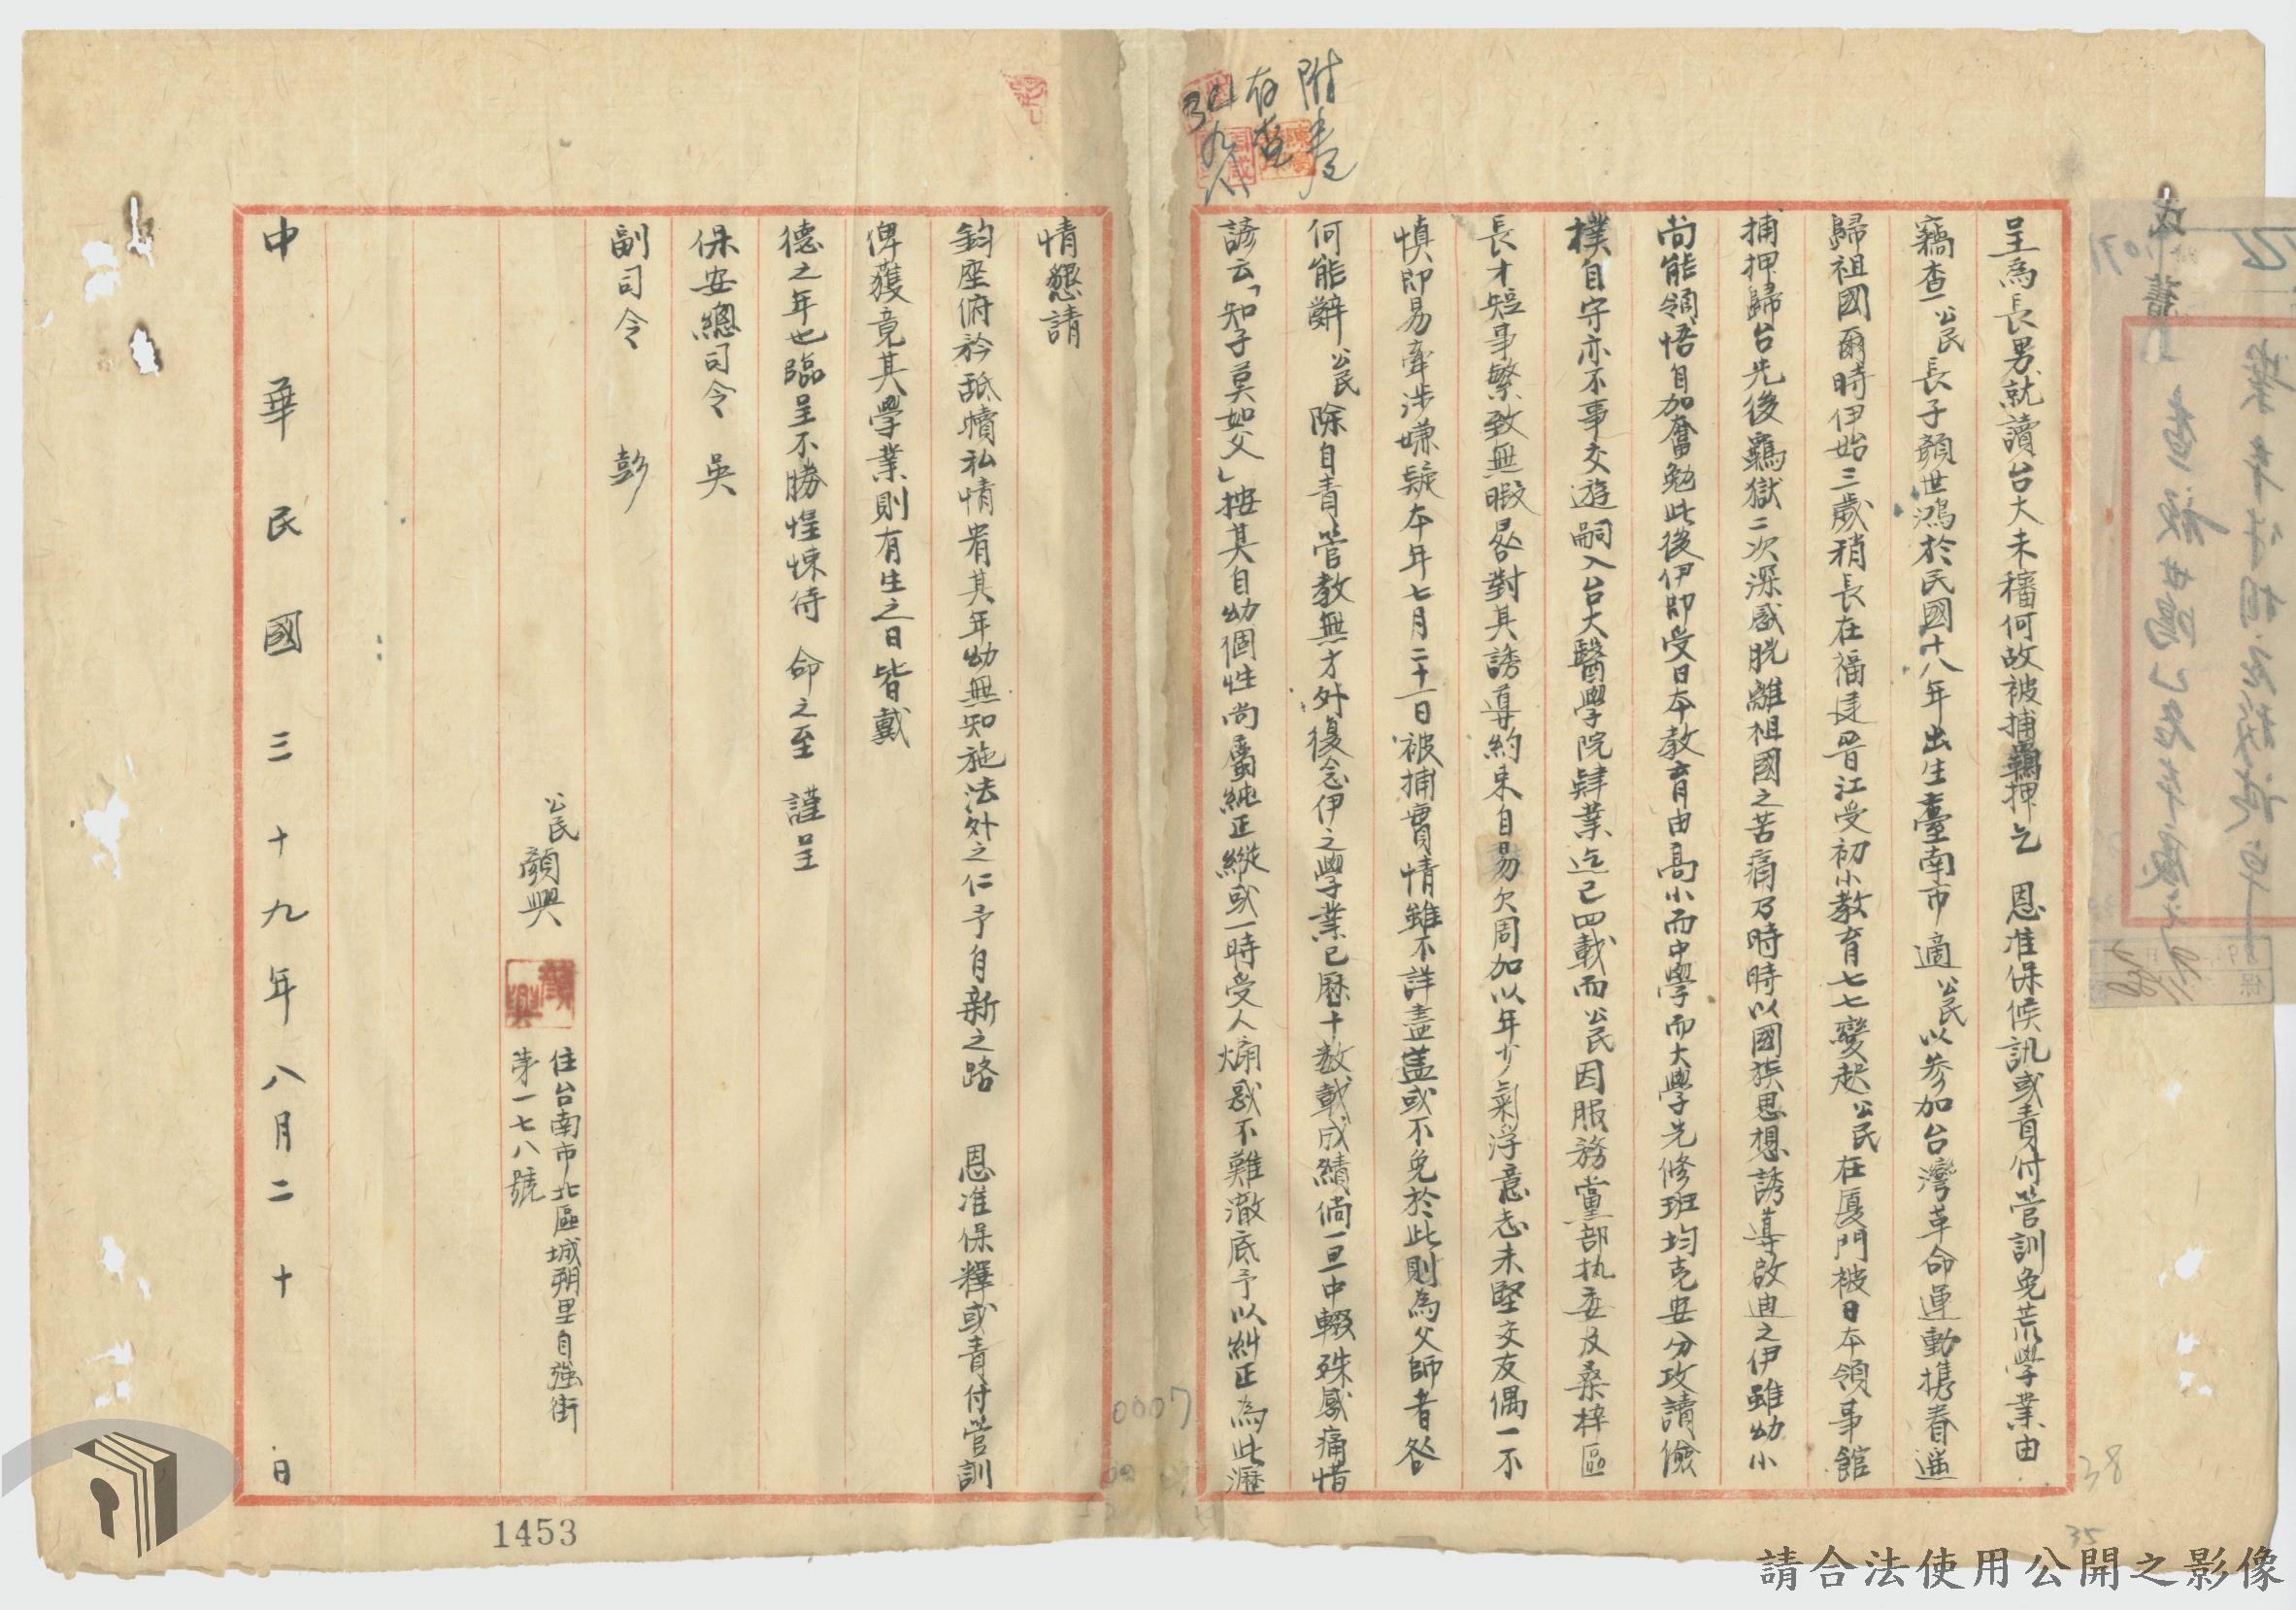 附卷
存查
呈為長男就讀台大未稽何故被捕羈押乞　恩准保候訊或責付管訓免荒學業由
竊查公民長子顏世鴻於民國十八年出生臺南市適公民以參加台灣革命運動携眷遥
歸祖國爾時伊始三歲稍長在福建晋江受初小教育七七變起公民在厦門被日本領事館
捕押歸台先後羈獄二次深感脱離祖國之苦痛乃時時以國族思想誘導啟迪之伊雖幼小
尚能領悟自加奮勉此後伊即受日本教育由高小而中學而大學先修班均克安分攻請儉
樸自守亦不事交遊嗣入台大醫學院肄業迄已四載而公民因服務黨部执委及桑梓區
長才短事繁致無暇晷對其誘導約束自易欠周加以年少氣浮意志未堅交友偶一不
慎即易牽涉嫌疑本年七月二十一日被捕實情雖不詳盡盖或不免於此則為父師者咎
何能辭公民除自責管教無方外復念伊之學業已歷十數載成績倘一旦中輟殊感痛惜
諺云「知子莫如父」按其自幼個性尚屬純正縱或一時受人煽惑不難澈底予以糾正為此瀝
情懇請
鈞座俯矜舐犢私情宥其年幼無知施法外之仁予自新之路　恩准保釋或責付管訓
俾獲竟其學業則有生之日皆戴
德之年也臨呈不勝惶悚待　命之至　謹呈
保安總司令　吳
副司令　彭
公民　顏興
住台南市北區城朔里自強街
第一七八號
中華民國三十九年八月二十　日
0007
38
35
1453
請合法使用公開之影像